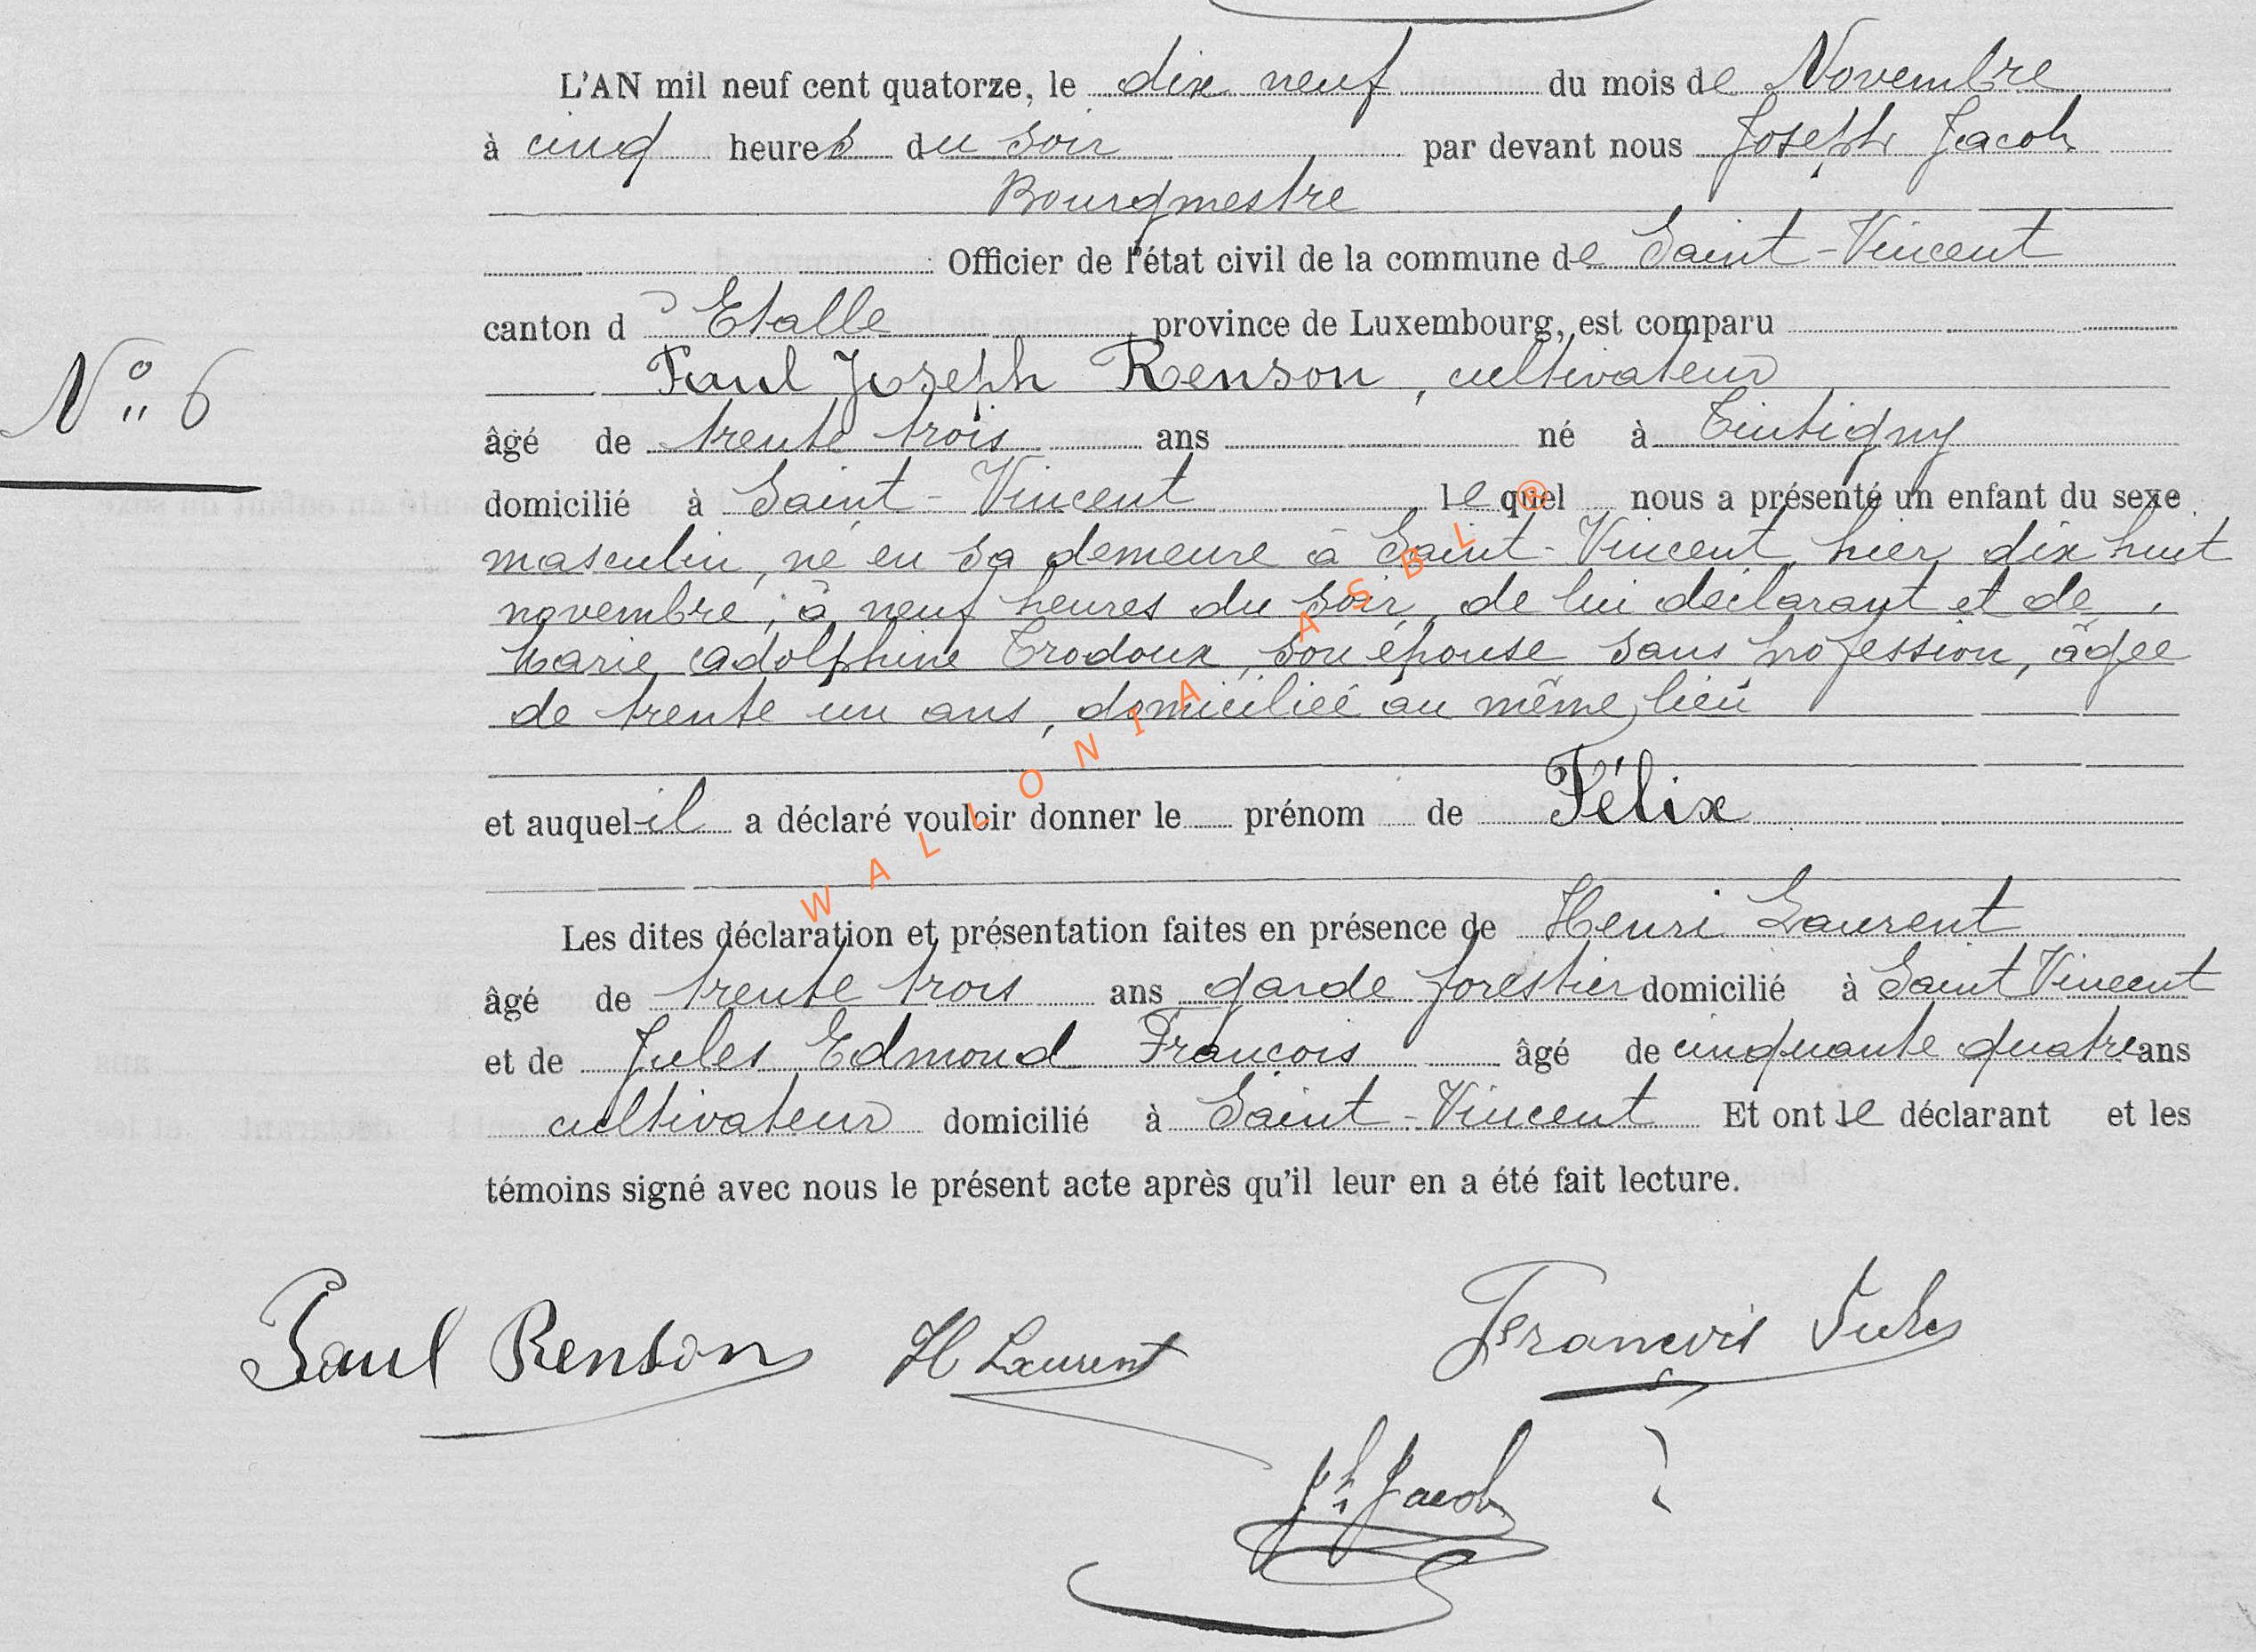 L'AN mil neuf cent quatorze, le dix neuf du mois de Novembre
à cinq heures du soir par devant nous Joseph Jacob
Bourgmestre
Officier de l'état civil de la commune de Saint-Vincent
canton d'Etalle province de Luxembourg, est comparu
Paul Joseph Renson, cultivateur
N° 6
âgé de trente trois ans né à Tintigny
domicilié à Saint-Vincent lequel nous a présenté un enfant du sexe
masculin, né en sa demeure à Saint-Vincent, hier, dix huit
novembre, à neuf heures du soir, de lui déclarant et de
Marie Adolphine Trodoux, son épouse sans profession, âgée
de trente un ans, domiciliée au même lieu
et auquel il a déclaré vouloir donner le prénom de Félix
Les dites déclaration et présentation faites en présence de Henri Laurent
âgé de trente trois ans garde forestier domicilié à Saint Vincent
et de Jules Edmond François âgé de cinquante quatre ans
cultivateur domicilié à Saint-Vincent Et ont le déclarant et les
témoins signé avec nous le présent acte après qu'il leur en a été fait lecture.
Paul Renson H Laurent François Jules
Jh Jacob
WALLONIA ASBL ®